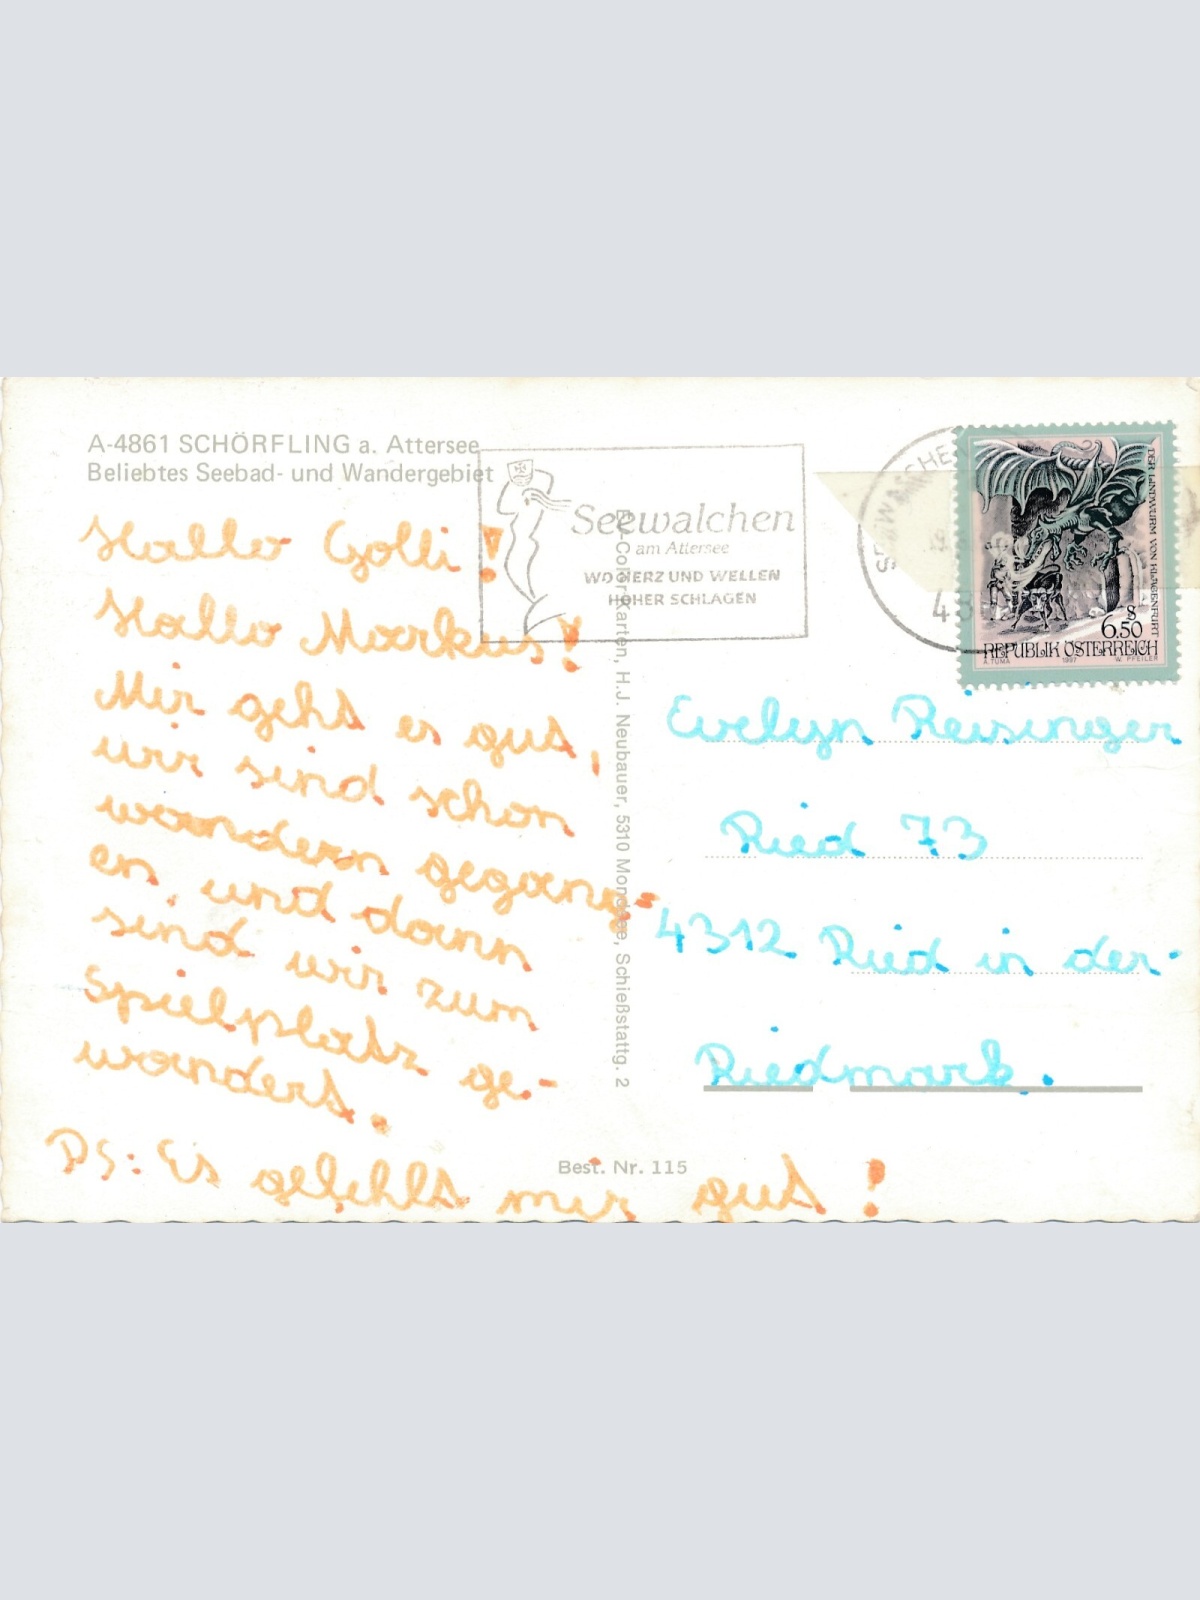 A-4861 SCHÖRFLING a. Attersee
Beliebtes Seebad- und Wandergebiet
Hallo Golli!
Hallo Markus!
Mir geht es gut,
wir sind schon
wandern gegang-
en, und dann
sind wir zum
Spielplatz ge-
wandert.
PS: Es gefehlt mir gut!
Seewalchen
am Attersee
WO HERZ UND WELLEN
HÖHER SCHLAGEN
Karten, H.J. Neubauer, 5310 Mondsee, Schießstattg. 2
Best. Nr. 115
DER LINDWURM VON KLAGENFURT
S
6.50
REPUBLIK ÖSTERREICH
A. TUMA 1997 W. PFEILER
Evelyn Reisinger
Ried 73
4312 Ried in der
Riedmark.